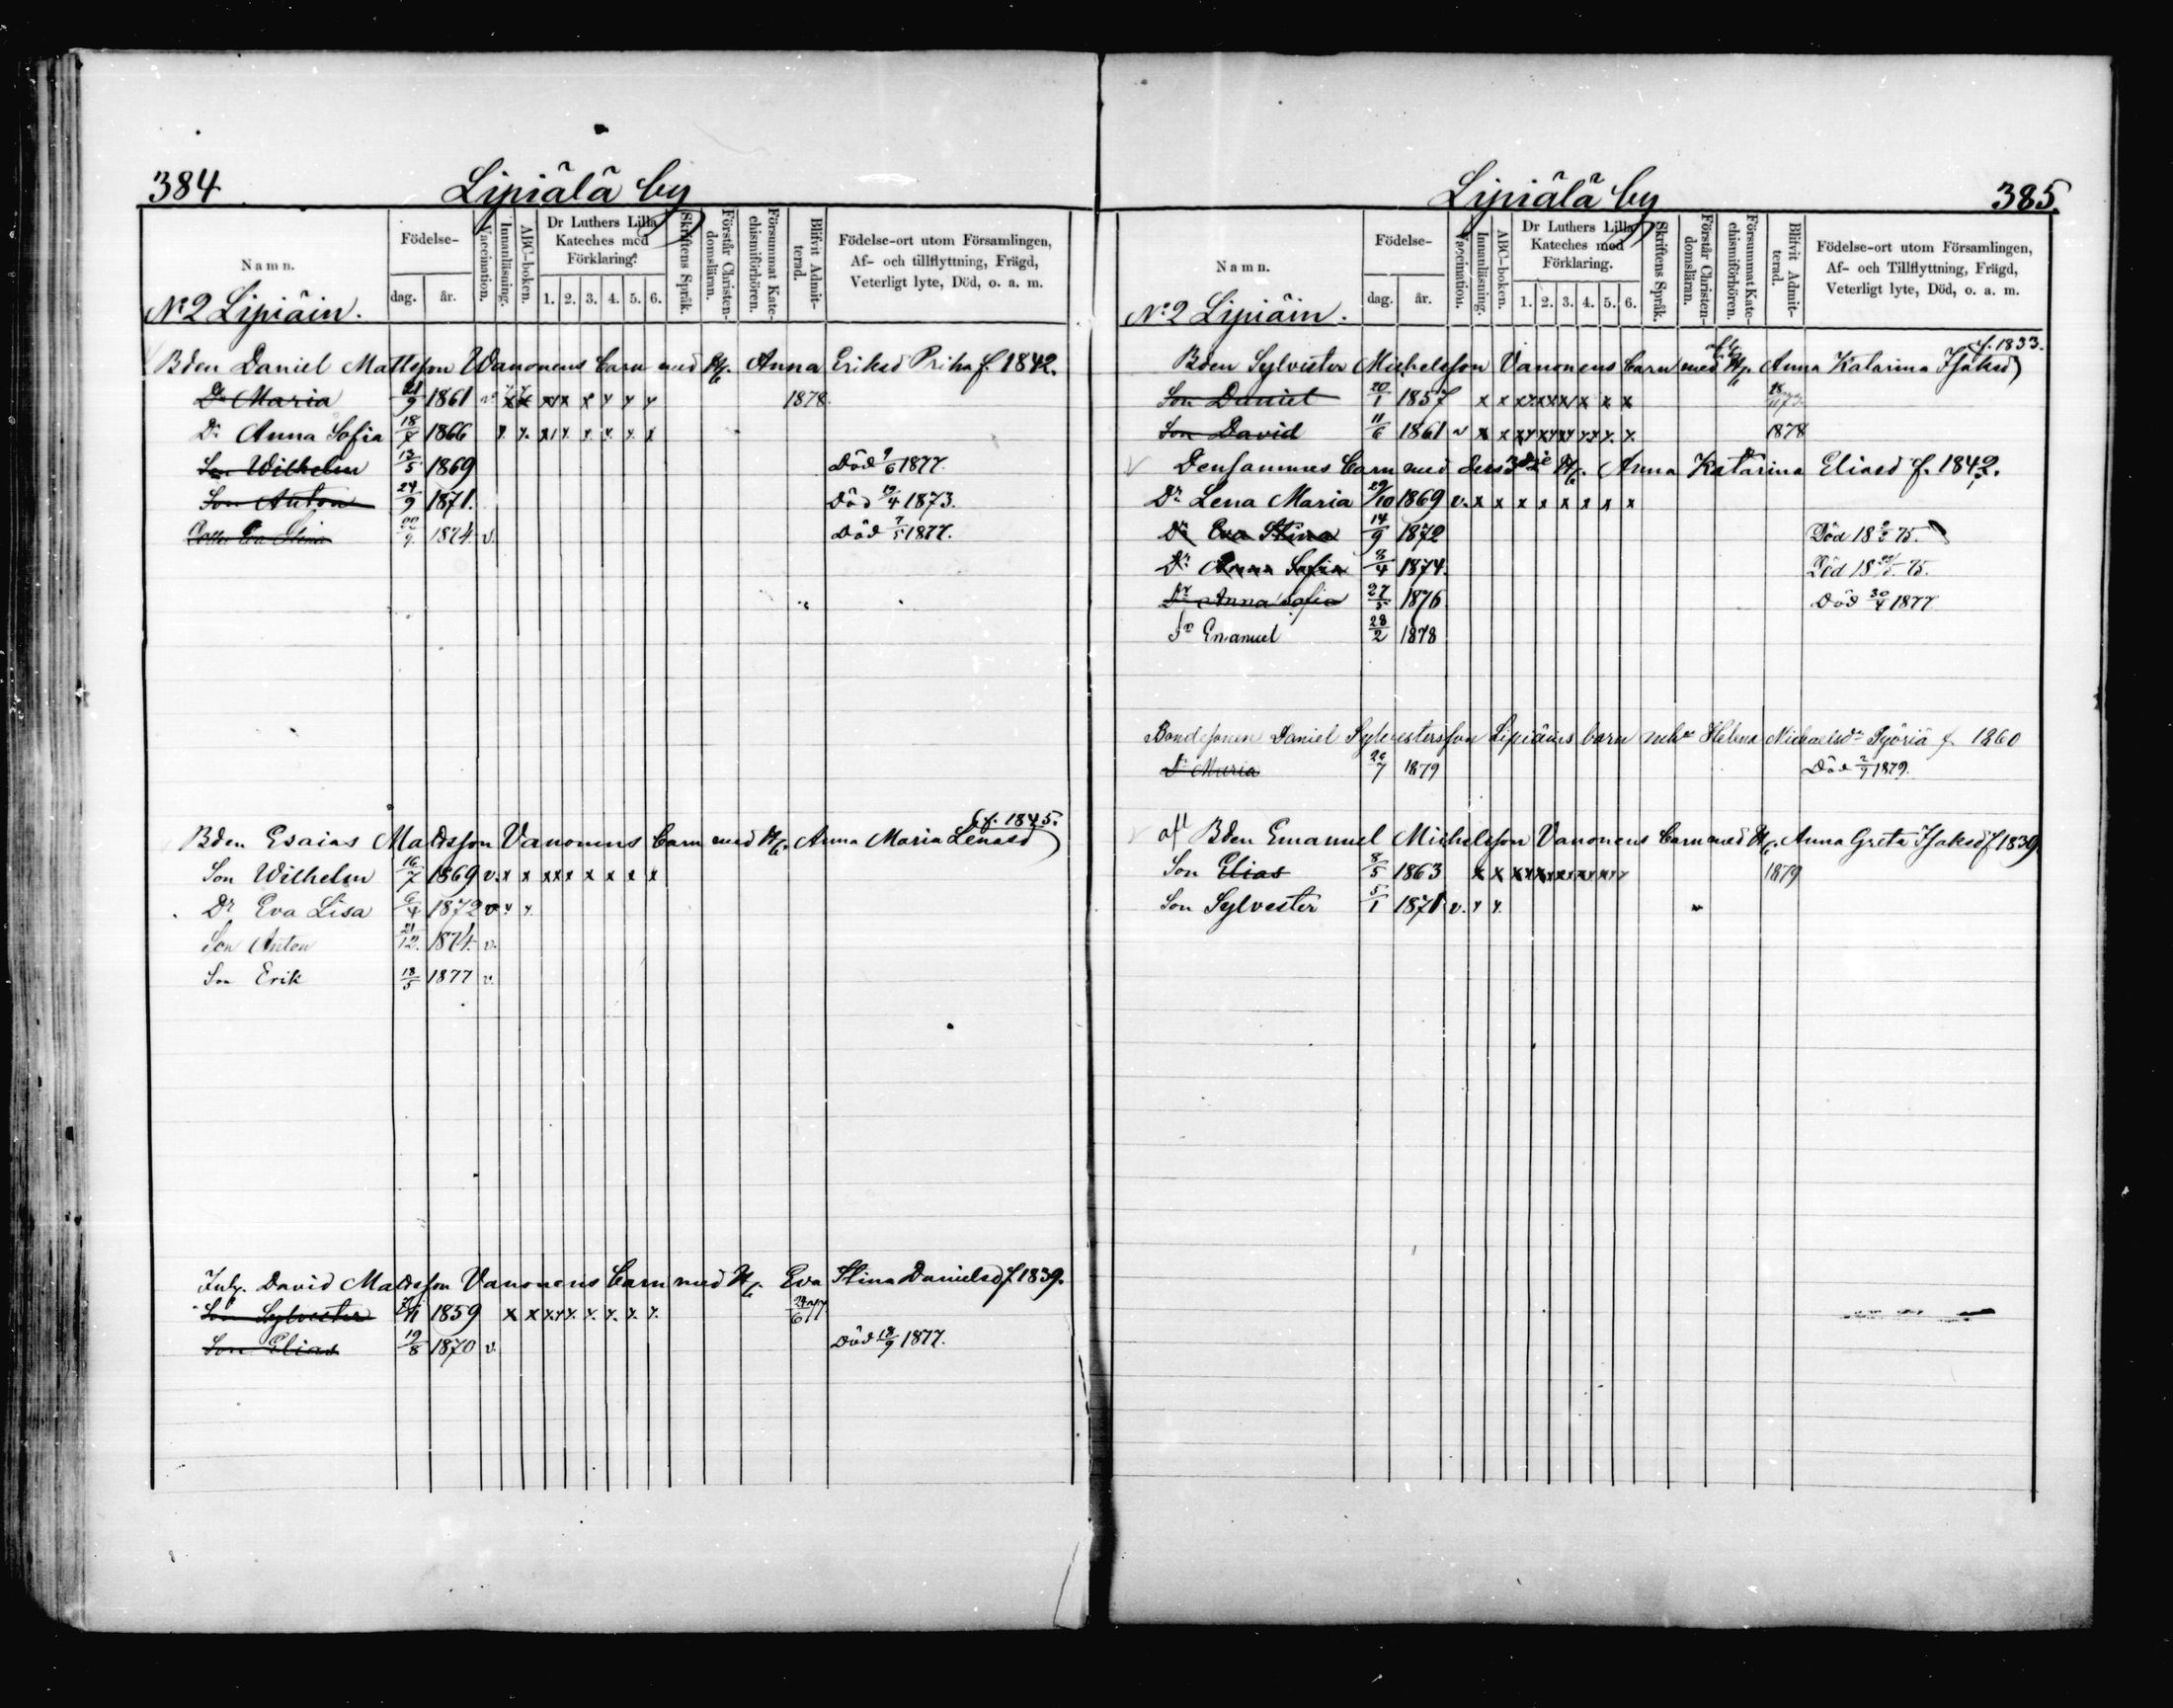 384
Lipiälä by
Namn.
Födelse-
dag.
år.
Vaccination.
Innanläsning.
ABC-boken.
Dr Luthers Lilla
Kateches med
Förklaring.
1. 2. 3. 4. 5. 6.
Skriftens Språk.
Förstår Christen-
domsläran.
Försummat Kate-
chismiförhören.
Blifvit Admit-
terad.
Födelse-ort utom Församlingen,
Af- och tillflyttning, Frägd,
Veterligt lyte, Död, o. a. m.
No 2 Lipiäin.
Bden Daniel Mattsson Wanonens barn med H. Anna Eriksd Priha f. 1842.
Dr Maria 21/9 1861 v x x x x x x x x x 1878
Dr Anna Sofia 18/8 1866 x x x x x x x x x
Son Wilhelm 13/5 1869 Död 9/6 1877.
Son Anton 24/9 1871. Död 19/4 1873.
Eva Stina 1874 v. Död 7/5 1877.
f. 1845.
Bden Esaias Mattsson Vanonens barn med H. Anna Maria Lenasd
Son Wilhelm 16/7 1869 v. x x x x x x x x x
Dr Eva Lisa 6/4 1872 v x x
Son Anton 21/12. 1874. v.
Son Erik 18/5 1877 v.
Inh. David Mattsson Vanonens barn med H. Eva Stina Danielsd f. 1839.
Son Sylvester 1859 x x x x x x x x x 24/6 77
Son Elias 19/8 1870 v. Död 18/9 1877.
385.
Lipiälä by
Namn.
Födelse-
dag.
år.
Vaccination.
Innanläsning.
ABC-boken.
Dr Luthers Lilla
Kateches med
Förklaring.
1. 2. 3. 4. 5. 6.
Skriftens Språk.
Förstår Christen-
domsläran.
Försummat Kate-
chismiförhören.
Blifvit Admit-
terad.
Födelse-ort utom Församlingen,
Af- och Tillflyttning, Frägd,
Veterligt lyte, Död, o. a. m.
No 2 Lipiäin.
f. 1833.
Bden Sylvester Michelsson Vanonens barn med afl. H. Anna Katarina Isaksd
Son Daniel 20/1 1857 x x x x x x x x x
Son David 11/6 1861 v x x x x x x x x 1878
Densammes barn med dess 2dje H. Anna Katarina Eliasd f. 1842.
Dr Lena Maria 29/10 1869 v. x x x x x x x x
Dr Eva Stina 14/9 1872 Död 18 75.
Dr Anna Sofia 8/4 1874. Död 18 75.
Dr Anna Sofia 27/5 1876 Död 30/4 1877
Sn Emanuel 28/2 1878
Bondesonen Daniel Sylvestersson Lipiäins barn m h Helena Michaelsdr Pyöriä f 1860
Dr Maria 1879 Död 1879.
afl Bden Emanuel Michelsson Vanonens barn med H. Anna Greta Isaksd f 1839
Son Elias 8/5 1863 x x x x x x x x 1879
Son Sylvester 5/1 1871 v. x x.